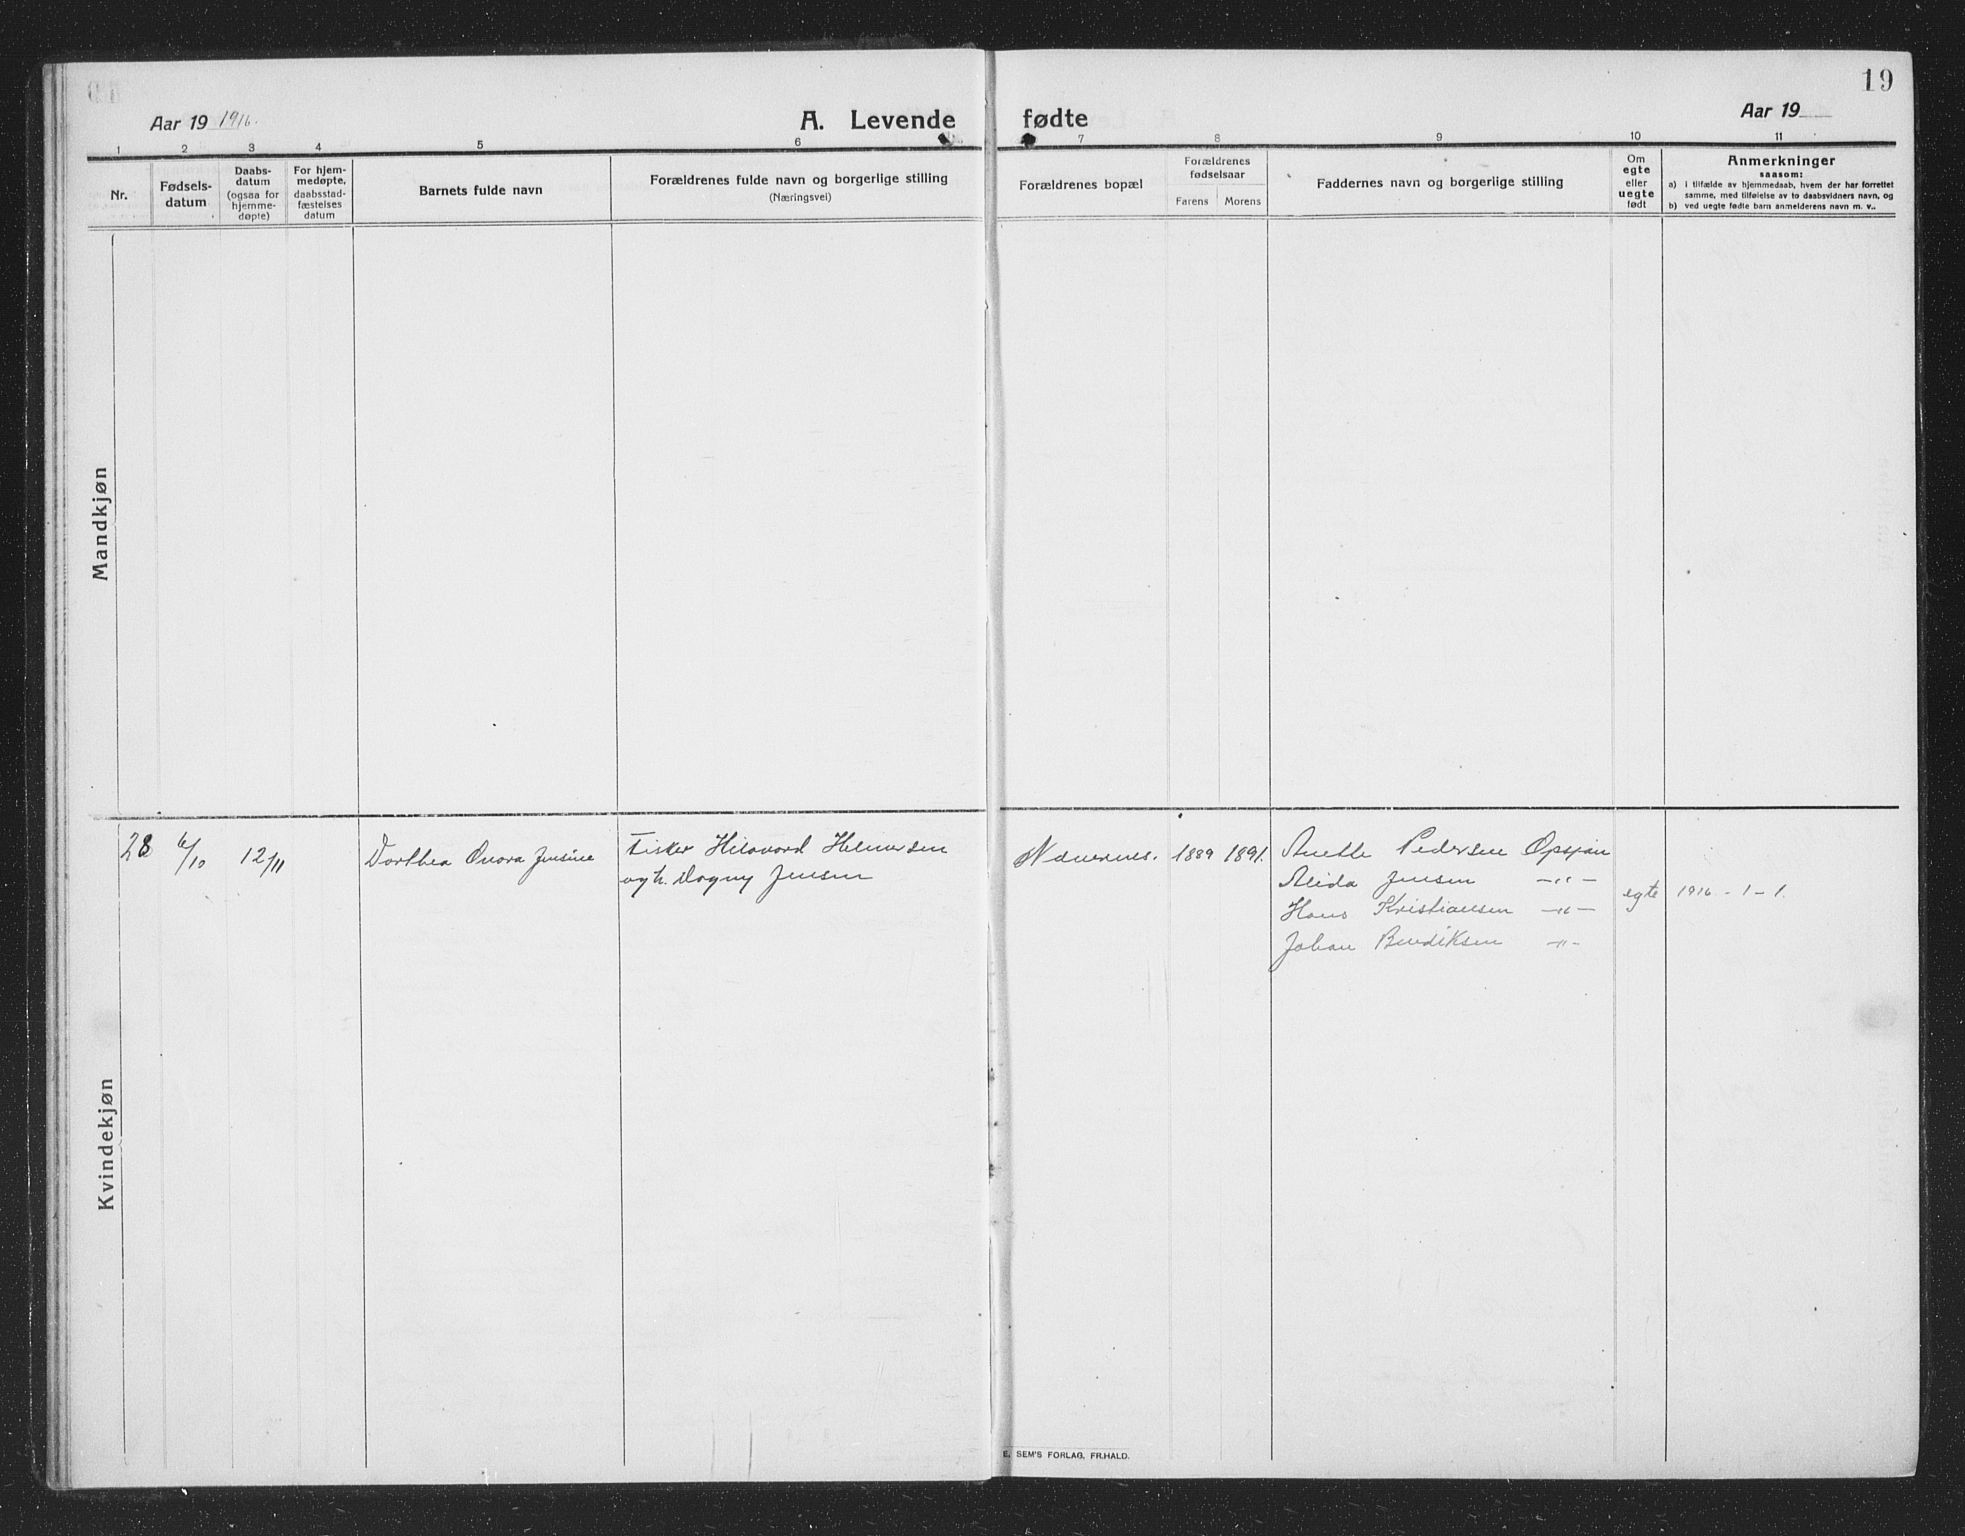 19
Aar 19 1916.
A. Levende fødte
Aar 19
1 2 3 4 5 6 7 8 9 10 11
Nr.
Fødsels-
datum
Daabs-
datum
(ogsaa for
hjemme-
døpte)
For hjem-
medøpte,
daabsstad-
fæstelses
datum
Barnets fulde navn
Forældrenes fulde navn og borgerlige stilling
(Næringsvei)
Forældrenes bopæl
Forældrenes
fødselsaar
Farens Morens
Faddernes navn og borgerlige stilling
Om
egte
eller
uegte
født
Anmerkninger
saasom:
a) i tilfælde av hjemmedaab, hvem der har forrettet
samme, med tilføielse av to daabsvidners navn, og
b) ved uegte fødte barn anmelderens navn m. v..
Mandkjøn
Kvindekjøn
28 6/10 12/11
Dorthea Jensine
Fisker Hilmar
og h. Dagny Jensen
1889 1891.
Anette Pedersen
Alida Jensen —"—
Hans Kristiansen —"—
Johan Bendiksen —"—
egte
1916 - 1 - 1.
E. SEM'S FORLAG, FR.HALD.